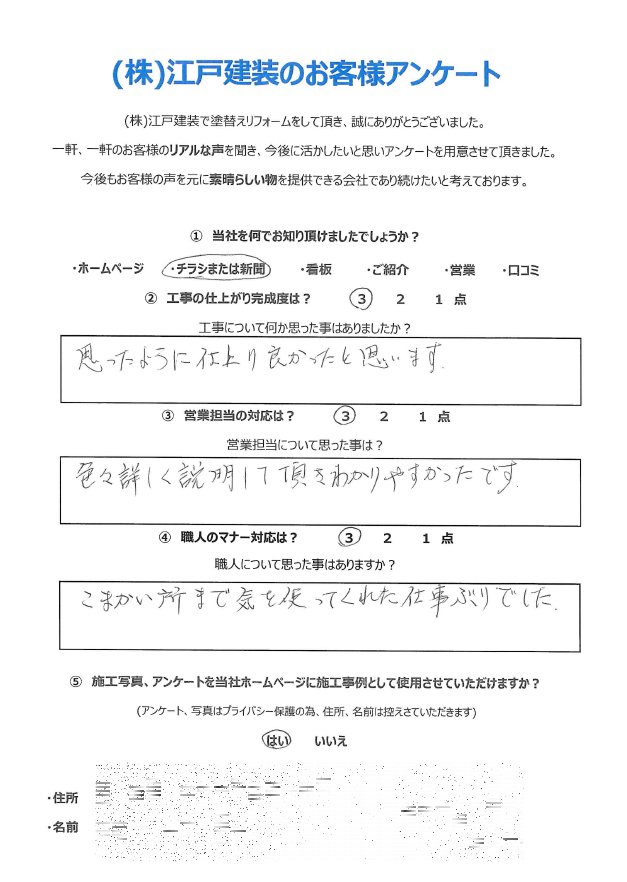 (株)江戸建装のお客様アンケート
(株)江戸建装で塗替えリフォームをして頂き、誠にありがとうございました。
一軒、一軒のお客様のリアルな声を聞き、今後に活かしたいと思いアンケートを用意させて頂きました。
今後もお客様の声を元に素晴らしい物を提供できる会社であり続けたいと考えております。
① 当社を何でお知り頂けましたでしょうか？
・ホームページ ・チラシまたは新聞 ・看板 ・ご紹介 ・営業 ・口コミ
② 工事の仕上がり完成度は？ 3 2 1 点
工事について何か思った事はありましたか？
思ったように仕上り良かったと思います.
③ 営業担当の対応は？ 3 2 1 点
営業担当について思った事は？
色々詳しく説明して頂きわかりやすかったです.
④ 職人のマナー対応は？ 3 2 1 点
職人について思った事はありますか？
こまかい所まで気を使ってくれた仕事ぶりでした.
⑤ 施工写真、アンケートを当社ホームページに施工事例として使用させていただけますか？
(アンケート、写真はプライバシー保護の為、住所、名前は控えさていただきます)
はい いいえ
・住所
・名前